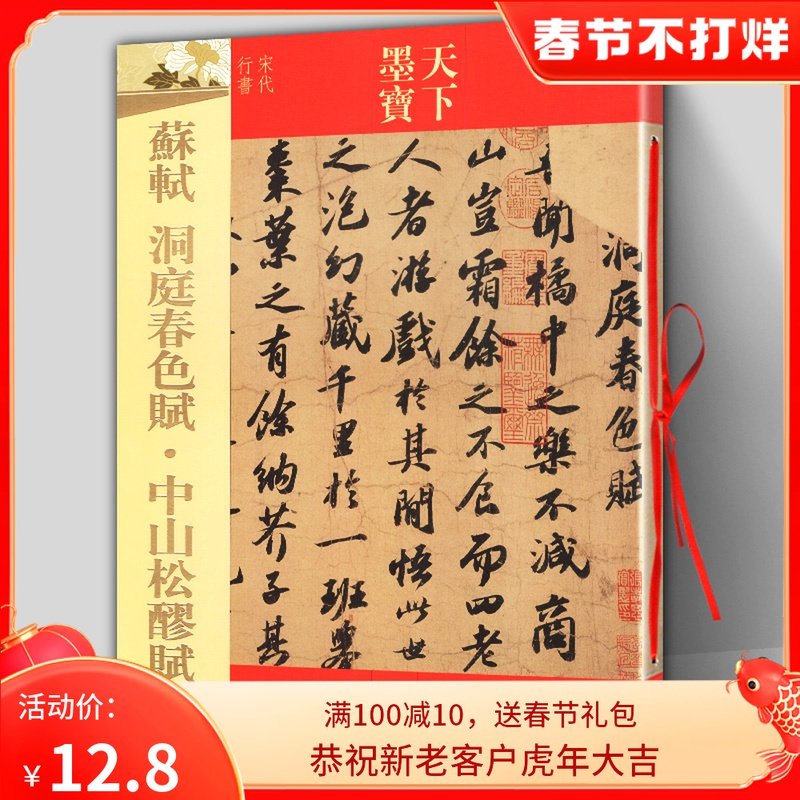 春节不打烊
天下
墨寶
宋代
行書
蘇軾 洞庭春色賦·中山松醪賦
洞庭春色賦
聞橘中之樂不減商
山豈霜餘之不食而四老
人者游戲於其間悟此世
之泡幻藏千里於一班舉
棗葉之有餘納芥子其
活动价:
¥12.8
满100减10，送春节礼包
恭祝新老客户虎年大吉